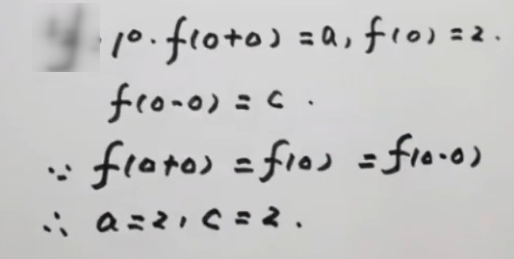 1°. f(0+0) = a, f(0) = 2.
f(0-0) = c.
∵ f(0+0) = f(0) = f(0-0)
∴ a = 2, c = 2.